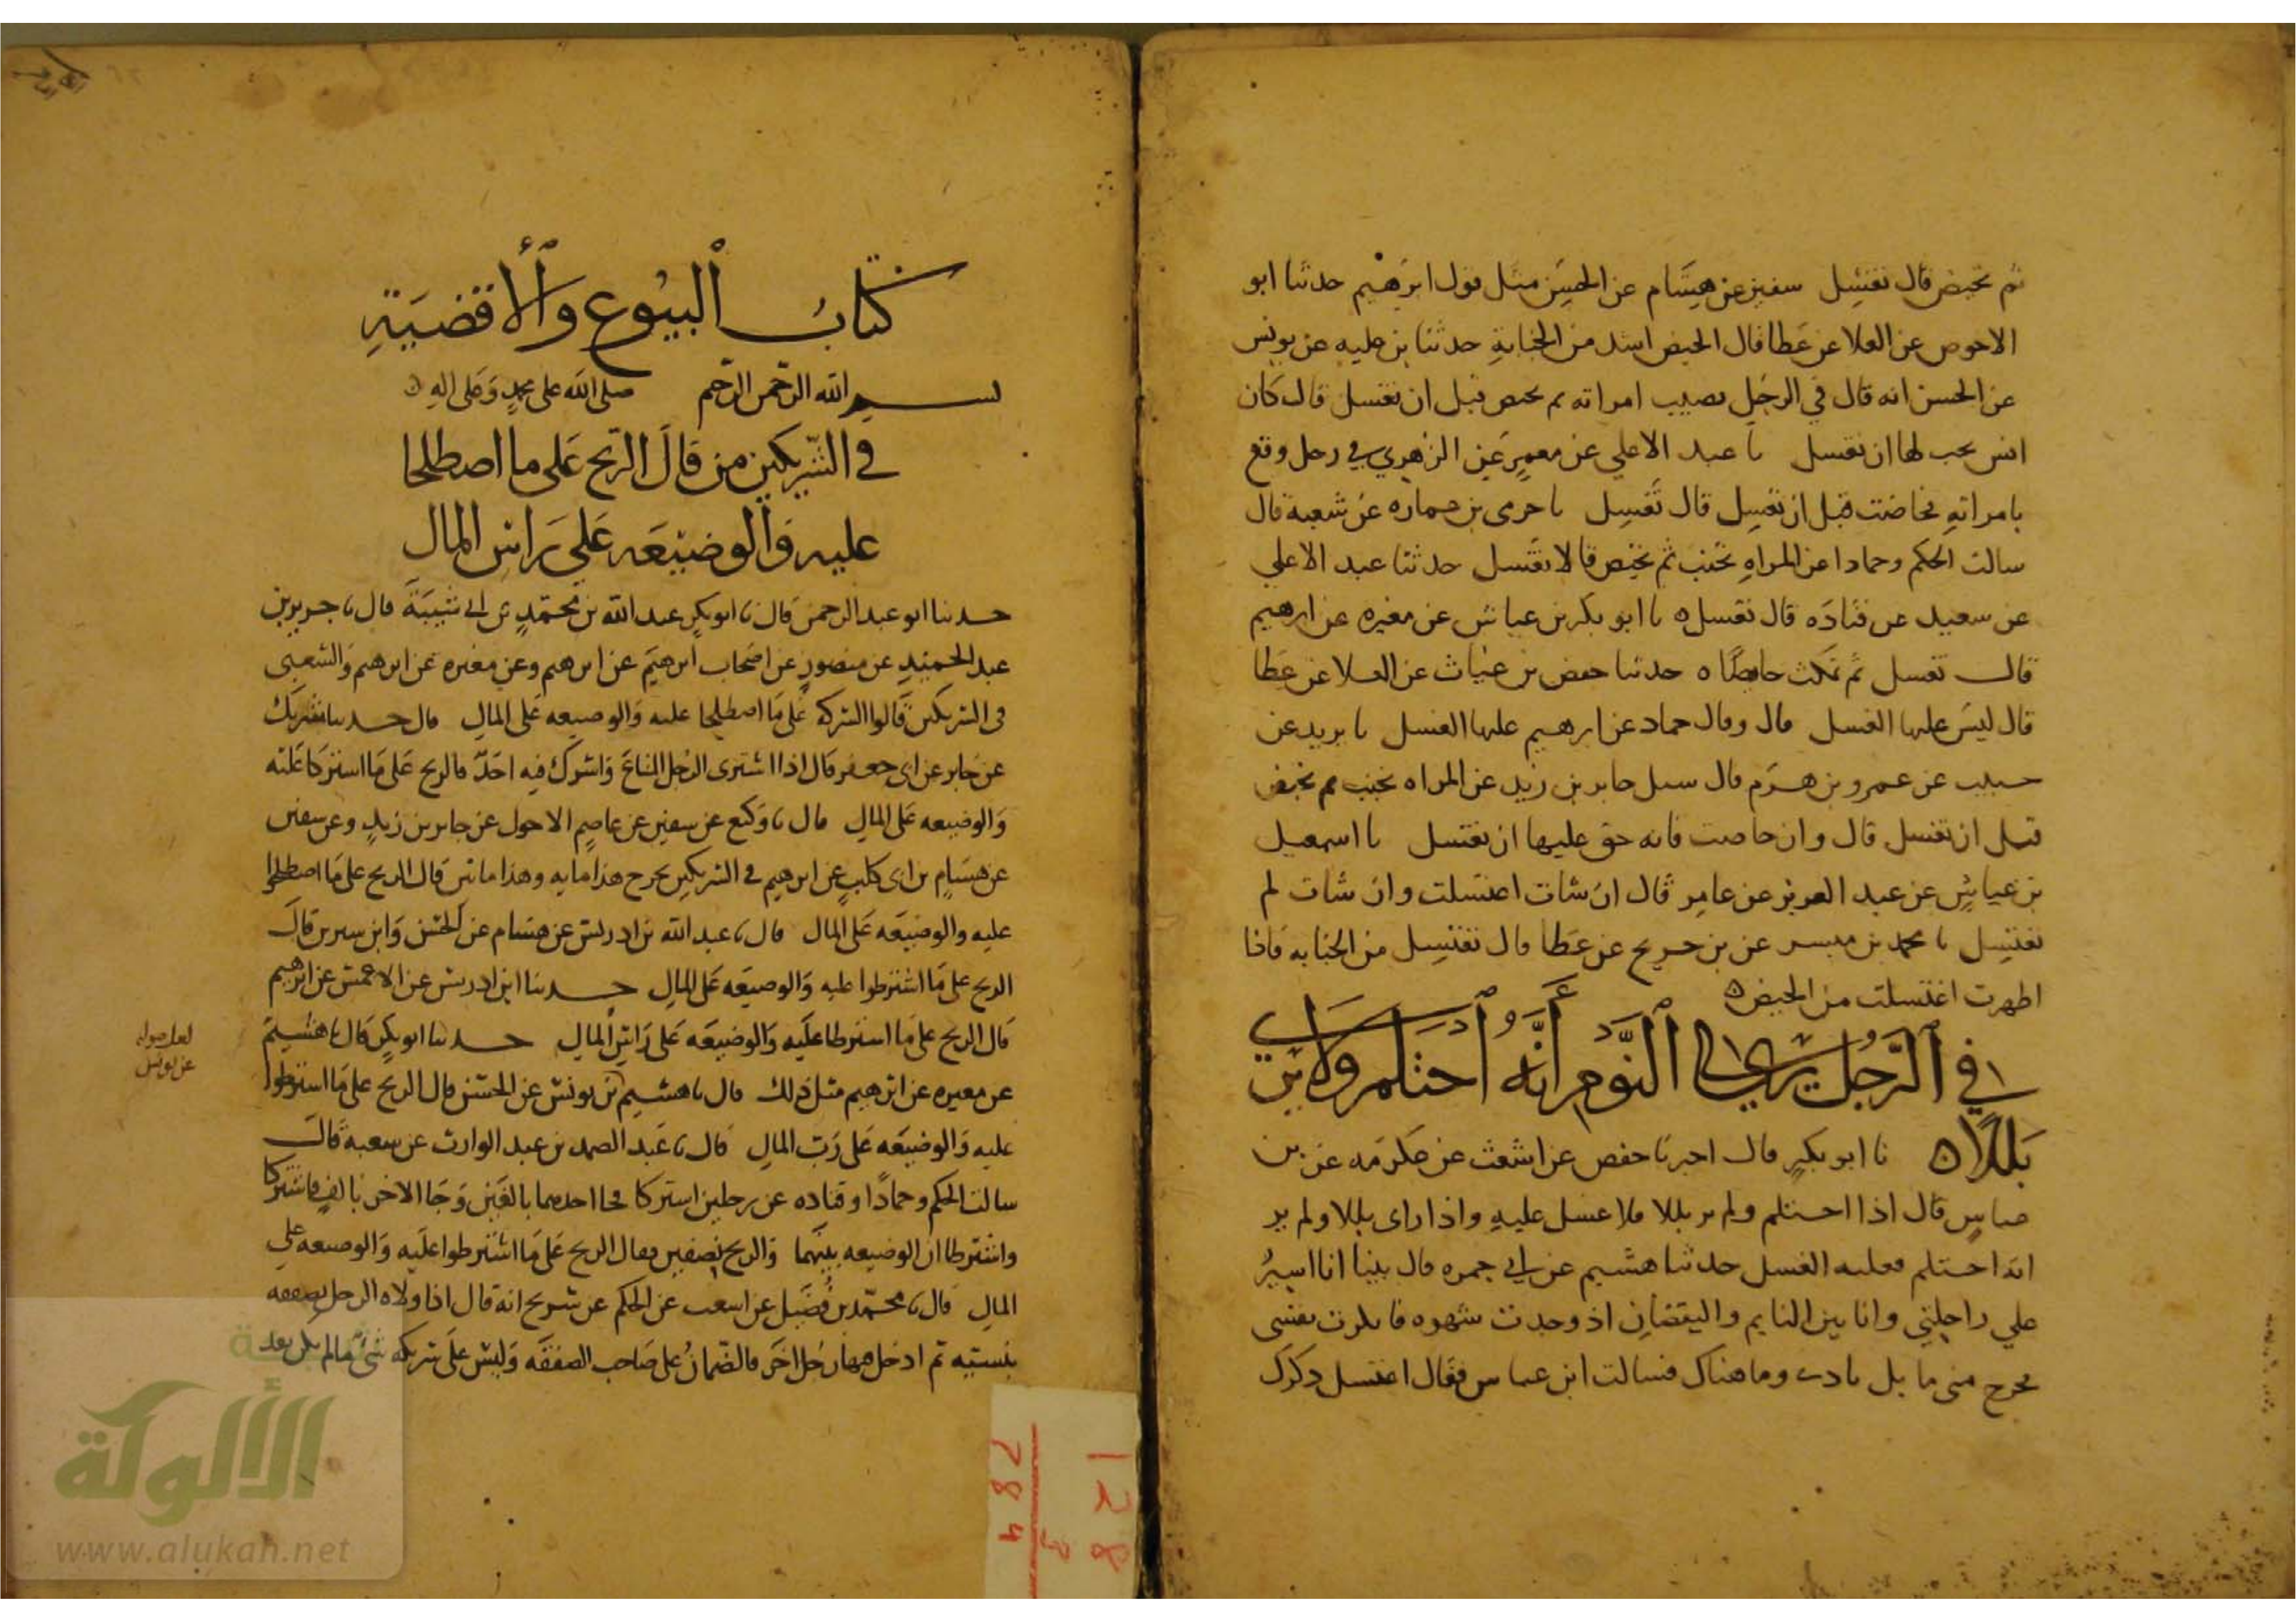 ثم تحيض قال تغتسل سفين عن هشام عن الحسن مثل قول ابرهيم حدثنا ابو
الاحوص عن العلا عن عطا قال الحيض اشد من الجنابة حدثنا بن علية عن يونس
عن الحسن انه قال في الرجل يصيب امراته ثم تحيض قبل ان تغتسل قال كان
انس يحب لها ان تغتسل نا عبد الاعلي عن معمر عن الزهري في رجل وقع
بامراته فحاضت قبل ان تغتسل قال تغتسل نا حرمى بن عماره عن شعبة قال
سالت الحكم وحمادا عن المراه تجنب ثم تحيض قالا تغتسل حدثنا عبد الاعلي
عن سعيد عن قتاده قال تغتسل ه نا ابو بكر بن عياش عن مغيره عن ابرهيم
قال تغسل ثم تمكث حايضا ه حدثنا حفص بن غياث عن العلا عن عطا
قال ليس عليها الغسل قال وقال حماد عن ابرهيم عليها الغسل نا يزيد عن
حبيب عن عمرو بن هرم قال سيل جابر بن زيد عن المراه تجنب ثم تحيض
قبل ان تغتسل قال وان حاضت فانه حق عليها ان تغتسل نا اسمعيل
بن عياش عن عبد العزيز عن عامر قال ان شات اغتسلت وان شات لم
تغتسل نا محمد بن ميسر عن بن جريج عن عطا قال تغتسل من الجنابه فاذا
اطهرت اغتسلت من الحيض ه
في الرجل يري في النوم انه احتلم ولا يري
بللا ه نا ابو بكر قال اخبرنا حفص عن اشعث عن عكرمه عن بن
عباس قال اذا احتلم ولم ير بللا فلا غسل عليه واذا راى بللا ولم ير
انه احتلم فعليه الغسل حدثنا هشيم عن ابي جمره قال بينا انا اسير
علي راحلتي وانا بين النايم واليقضان اذ وجدت شهوه فانكرت نفسى
فخرج منى ما بل بادى وما هناك فسالت ابن عباس فقال اغتسل ذكرك
كتاب البيوع والاقضية
بسم الله الرحمن الرحيم صلى الله على محمد وعلى اله ه
في الشريكين من قال الربح على ما اصطلحا
عليه والوضيعه علي راس المال
حدثنا ابو عبد الرحمن قال نا ابو بكر عبد الله بن محمد بن ابي شيبة قال نا جرير بن
عبد الحميد عن منصور عن اصحاب ابرهيم عن ابرهيم وعن مغيره عن ابرهيم والشعبى
فى الشريكين قالوا الشركة على ما اصطلحا عليه والوضيعه على المال قال حدثنا شريك
عن جابر عن ابى جعفر قال اذا اشترى الرجل المتاع واشرك فيه احدا فالربح على ما اشتركا عليه
والوضيعه على المال قال نا وكيع عن سفين عن عاصم الاحول عن جابر بن زيد وعن سفين
عن هشام بن ابى كليب عن ابرهيم في الشريكين يخرج هذا مايه وهذا مايتين قال الربح على ما اصطلحوا
عليه والوضيعه على المال قال نا عبد الله بن ادريس عن هشام عن الحسن وابن سيرين قال
الربح على ما اشترطوا عليه والوضيعه على المال حدثنا ابن ادريس عن الاعمش عن ابرهيم
قال الربح على ما اشترطا عليه والوضيعه على راس المال حدثنا ابو بكر قال نا هشيم
عن مغيره عن ابرهيم مثل ذلك قال نا هشيم بن يونس عن الحسن قال الربح على ما اشترطوا
لعل صوابه
عن يونس
عليه والوضيعه على رب المال قال نا عبد الصمد بن عبد الوارث عن شعبه قال
سالت الحكم وحمادا وقتاده عن رجلين اشتركا فجا احدهما بالفين وجا الاخر بالف فاشتركا
واشترطا ان الوضيعه بينهما والربح نصفين فقال الربح على ما اشترطوا عليه والوضيعه على
المال قال نا محمد بن فضيل عن اشعث عن الحكم عن شريح انه قال اذا ولاه الرجل بصفقه
بنسيته ثم ادخل فيها رجل اخر فالضمان على صاحب الصفقه وليس على شريكه شى ما لم يكن بعد
الألوكة
www.alukah.net
128
284